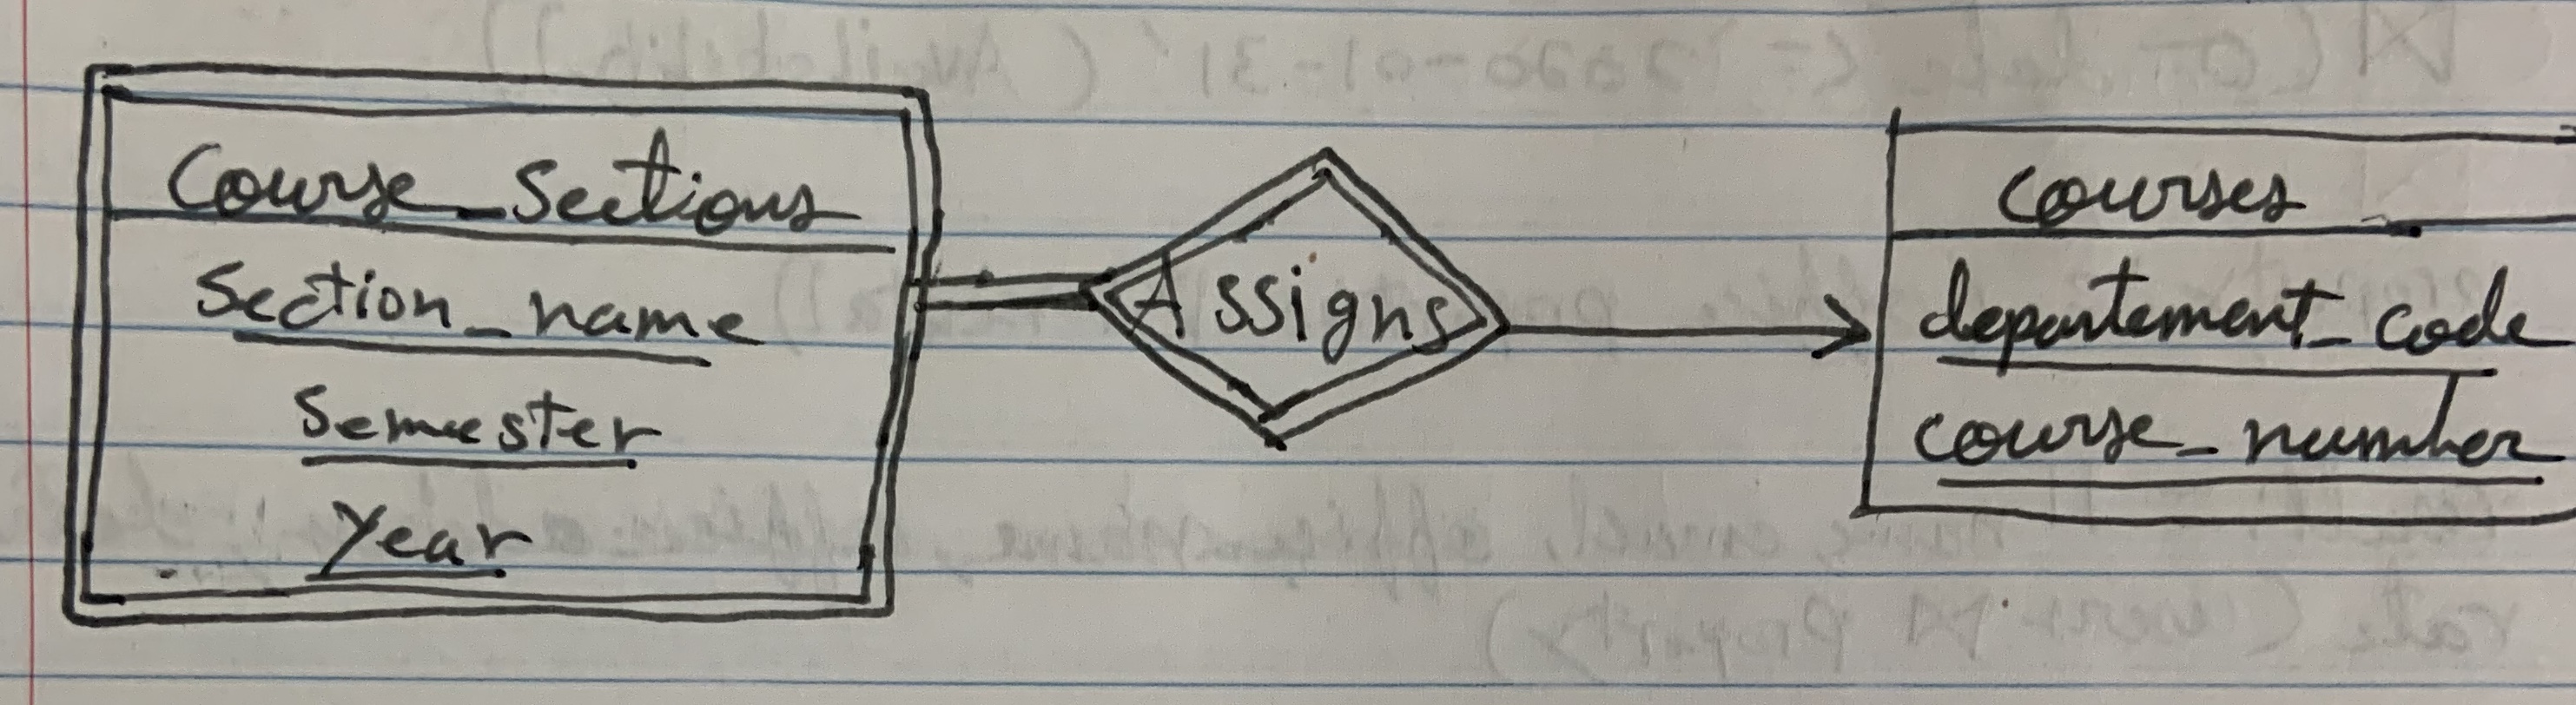 Course_Sections
Section_name
Semester
Year
Assigns
courses
departement_code
course_number